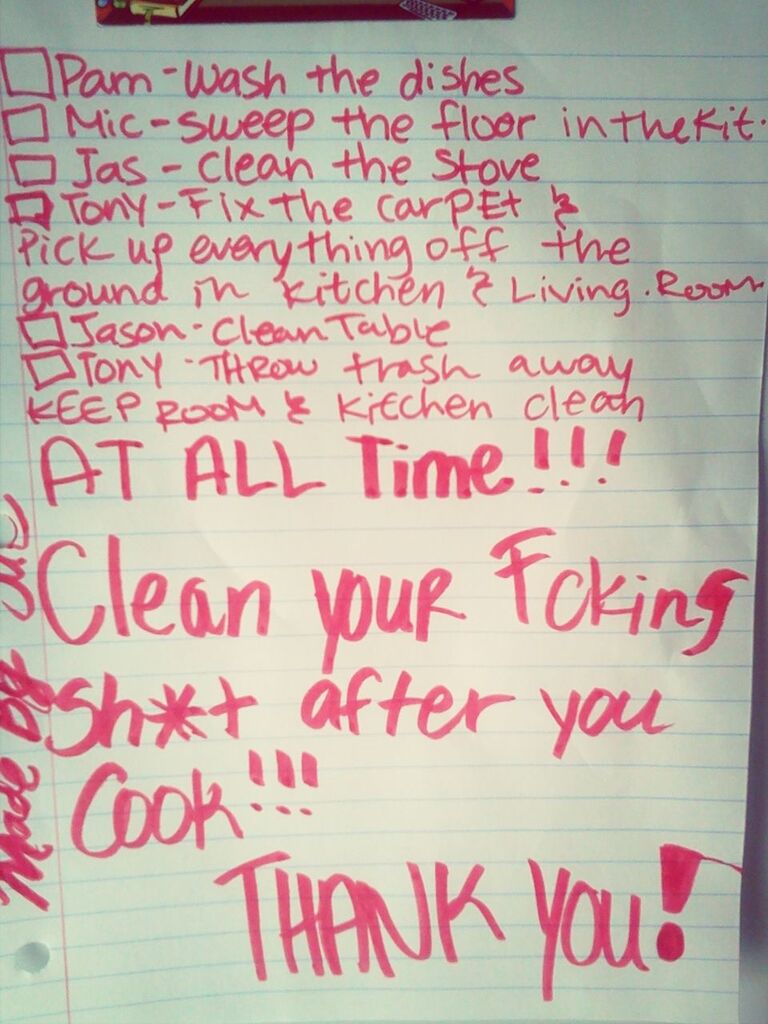 Pam - Wash the dishes
Mic - sweep the floor in the Kit.
Jas - Clean the Stove
Tony - Fix the carpEt &
Pick up everything off the
ground in kitchen & Living.Room
Jason - Clean Table
Tony - THROW trash away
KEEP ROOM & Kitchen clean
AT ALL Time!!!
Clean your Fcking
Sh*t after you
Cook!!!
THANK YOU!
Made By